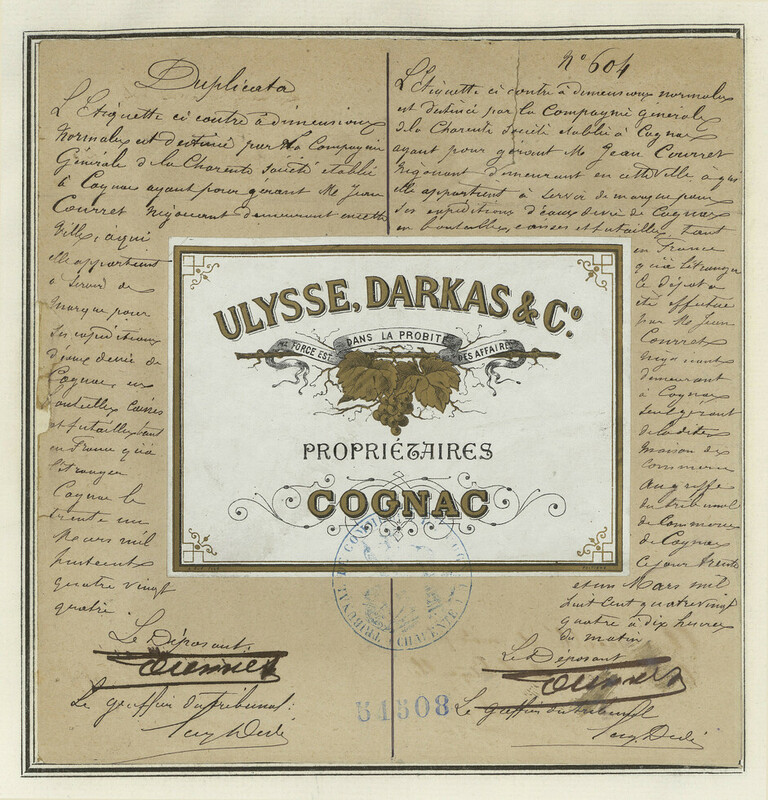 Duplicata
L'Etiquette ci contre à dimensions
normales est destinée par la Compagnie
Générale de la Charente Société établie
à Cognac ayant pour gérant Mr Jean
Courret Négociant demeurant en cette
Ville, à qui
elle appartient
à servir de
marque pour
ses expéditions
d'eaux de vie de
Cognac, en
bouteilles, caisses
et futailles, tant
en France qu'à
l'Etranger
Cognac le
trente un
Mars mil
huit cent
quatre vingt
quatre.
Le Déposant
Courret
Le greffier du tribunal.
N° 604
L'Etiquette ci contre à dimensions normales
est destinée par la Compagnie générale
de la Charente Société établie à Cognac
ayant pour gérant Mr Jean Courret
Négociant demeurant en cette Ville, à qui
elle appartient à servir de marque pour
ses expéditions d'eaux de vie de Cognac
en bouteilles, caisses et futailles, tant
en France
qu'à l'étranger
le dépot a
été effectué
par Mr Jean
Courret
négociant
demeurant
à Cognac
seul gérant
de la dite
maison de
commerce
au greffe
du tribunal
de Commerce
de Cognac
ce jour trente
et un Mars mil
huit cent quatre vingt
quatre à dix heures
du matin
Le Déposant
Courret
Le greffier du tribunal
ULYSSE, DARKAS & Co.
LA FORCE EST DANS LA PROBITÉ DES AFFAIRES
PROPRIÉTAIRES
COGNAC
TRIBUNAL DE COMMERCE
CHARENTE
51508